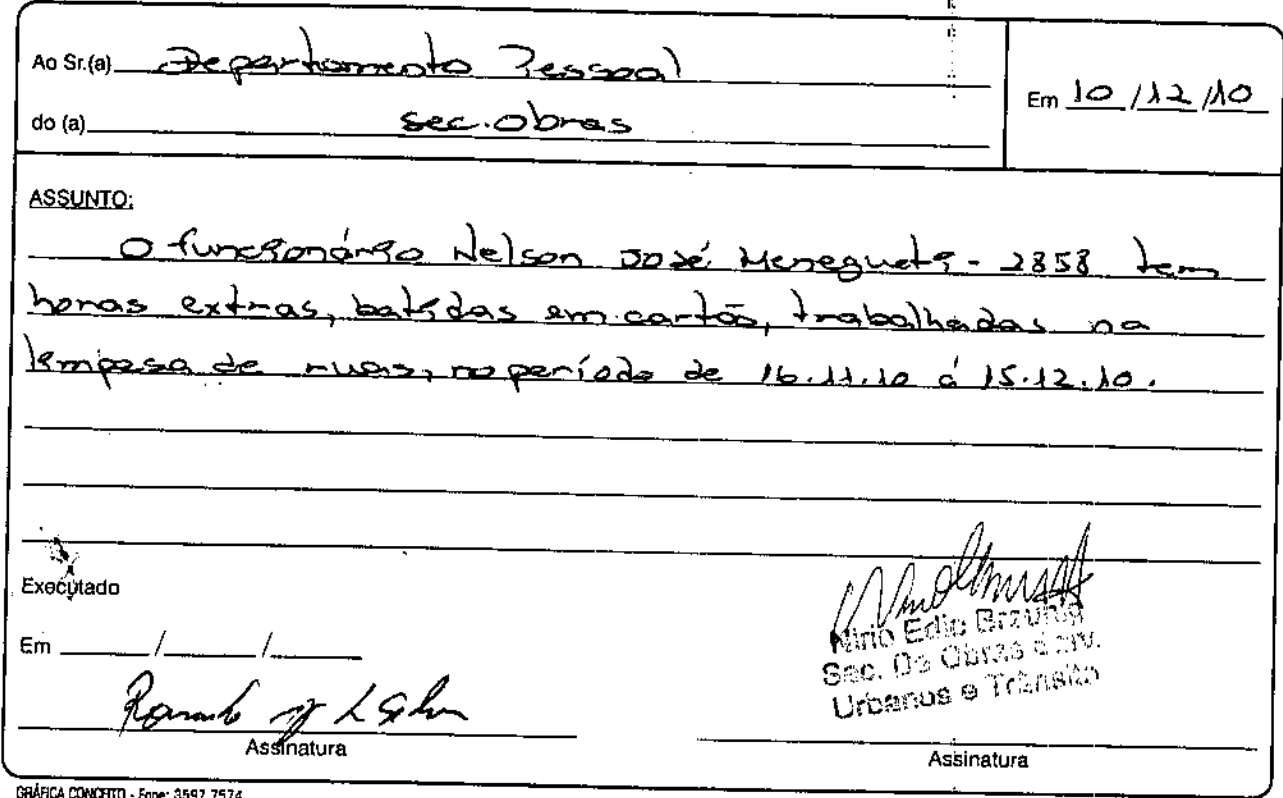 Ao Sr.(a) Departamento Pessoal
do (a) Sec. Obras
Em 10/12/10
ASSUNTO:
O funcionário Nelson José Menegueti - 2858 tem
horas extras, batidas em cartão, trabalhadas na
limpesa de ruas, no período de 16.11.10 á 15.12.10.
Executado
Em / /
Assinatura
Nirio Edio
Sec. De Obras e
Urbanos e Trânsito
Assinatura
GRÁFICA CONCEITO - Fone: 3597 7574